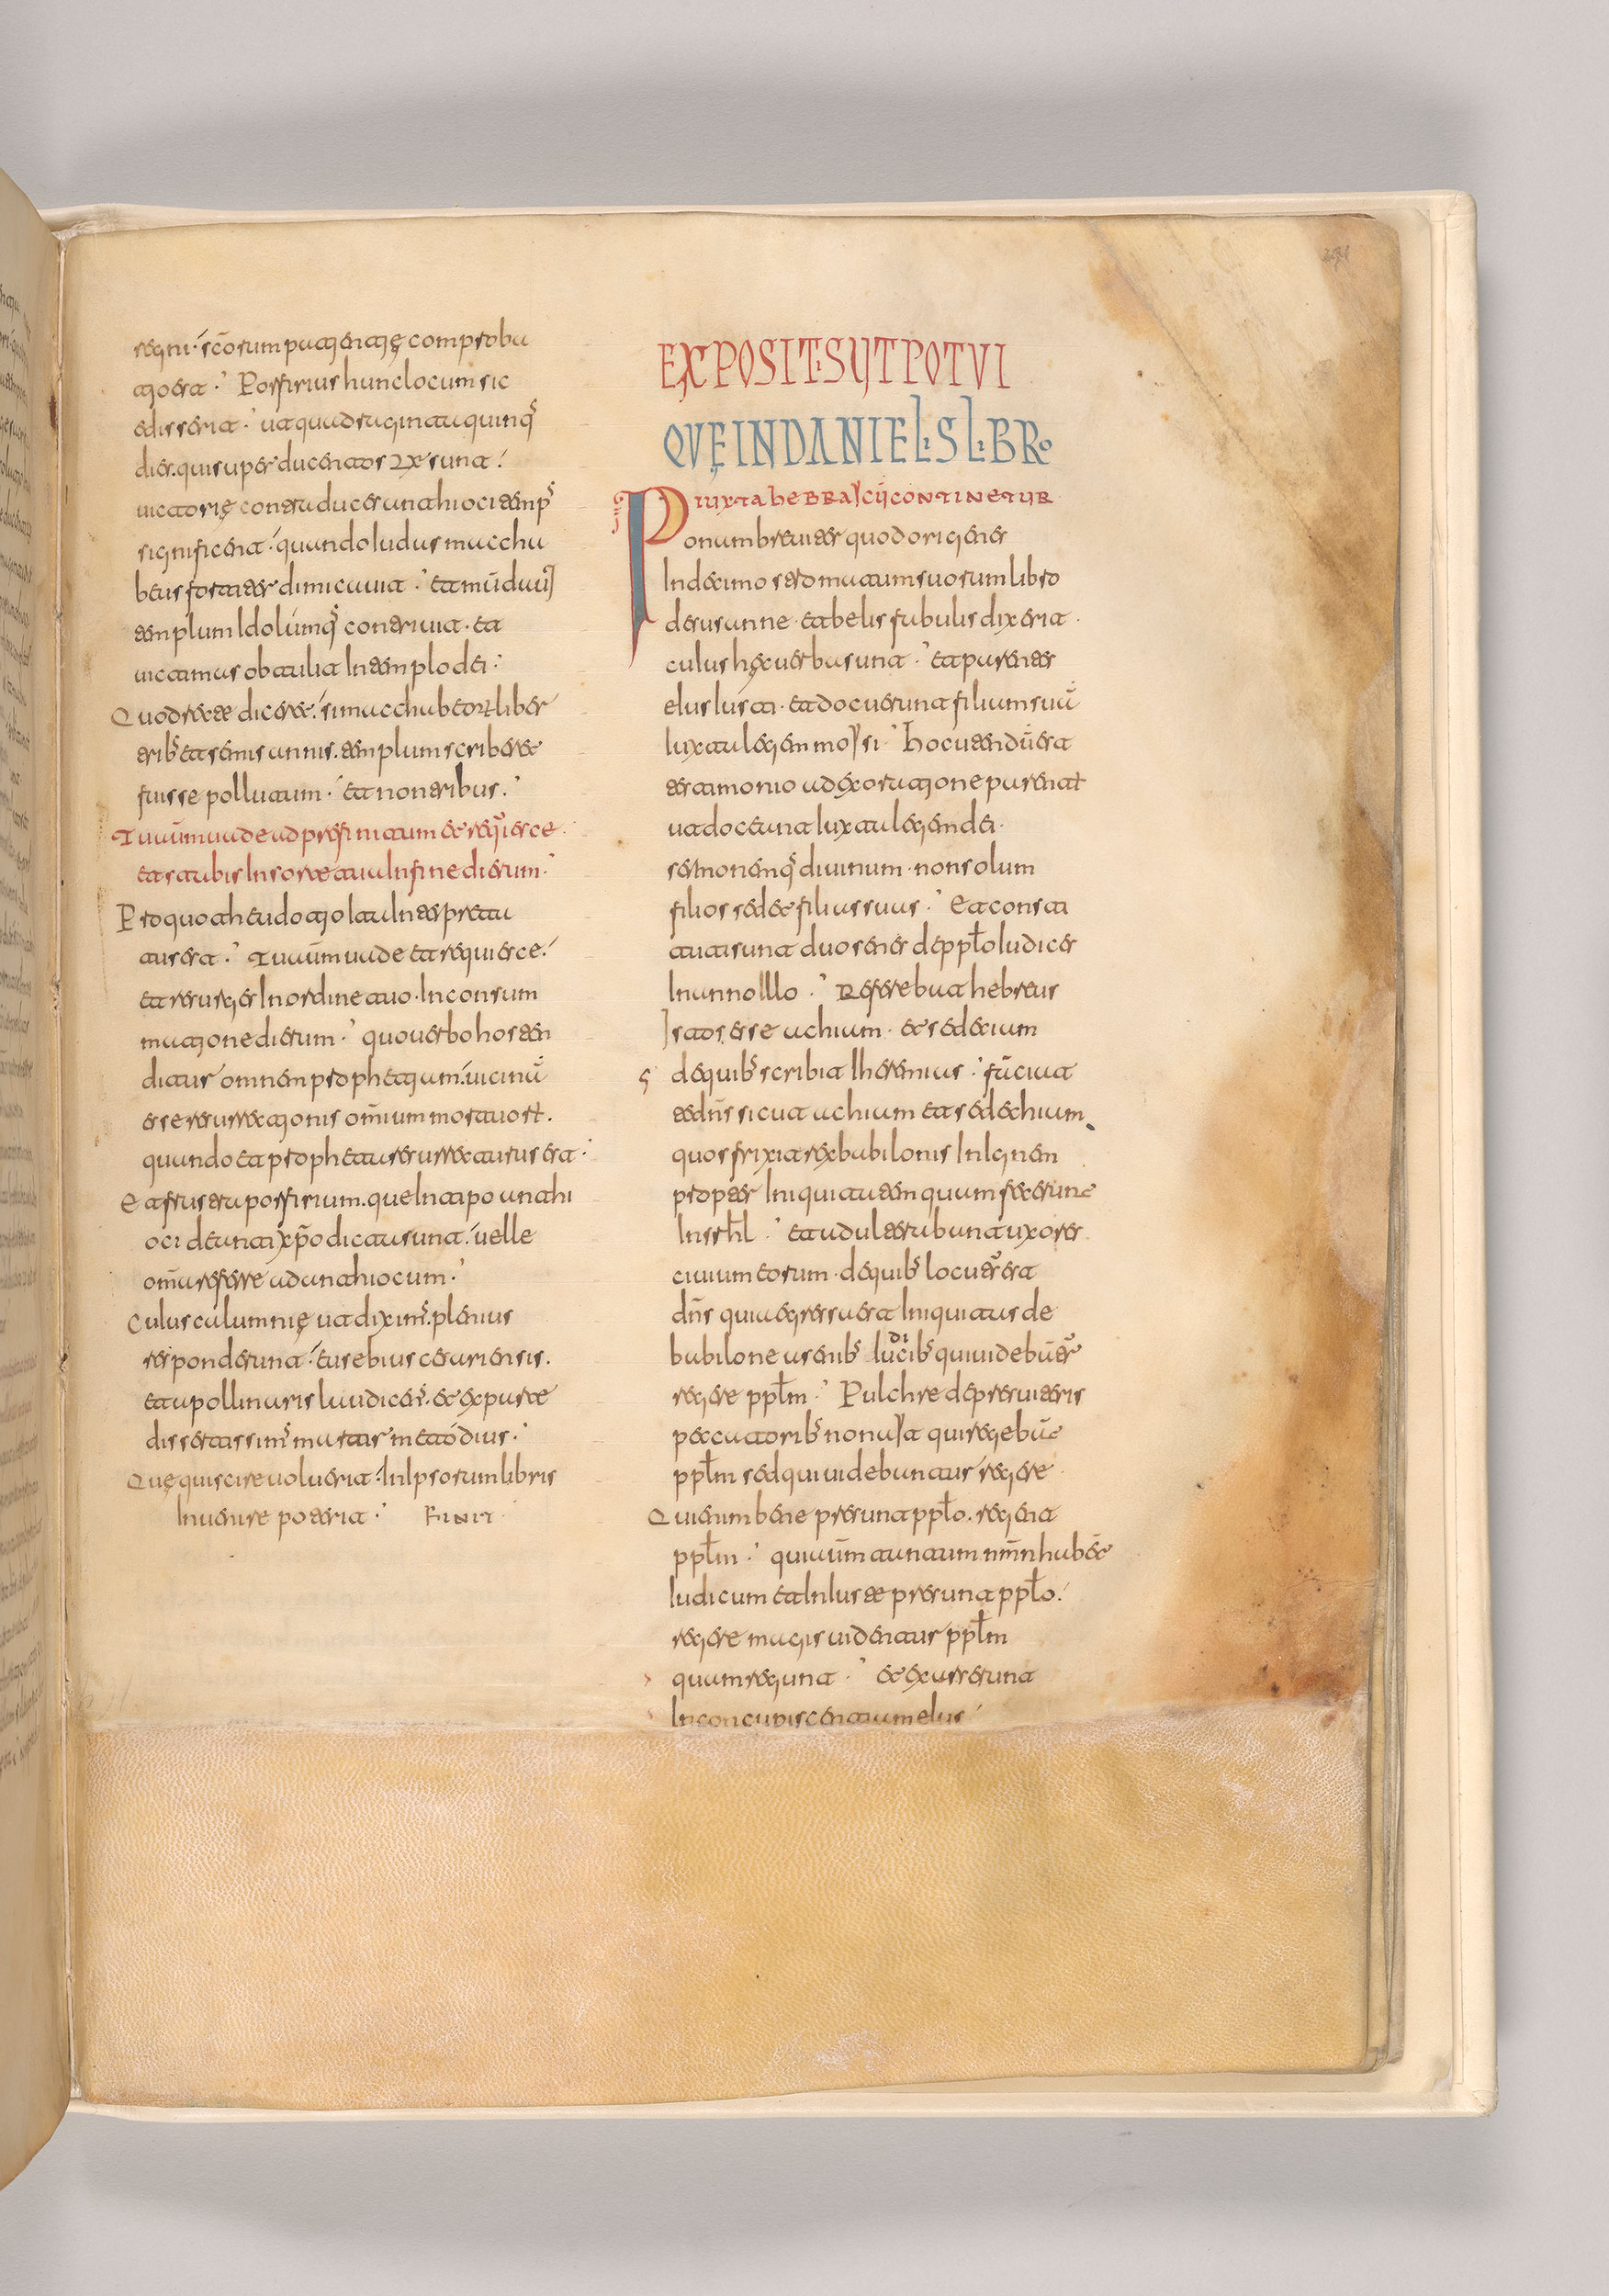 regni · sc̄orum patientię comproba
tio est · Porfirius hunc locum sic
edisserit · ut quadraginta quinq̄
dies. qui super ducentos Lx sunt.
uictorię contra duces antioci temp̄s
significent. quando iudas maccha
beus fortiter dimicauit · et mūdauit
templum Idolumq̄ contriuit · et
uictimas obtulit In templo dei.
Quod recte diceret. si macchabeor̄ liber
trib̄ et semis annis. templum scriberet
fuisse pollutum · et non tribus.
Tu aūm uade ad prefinitum et reqiesce
et stabis In sorte tua In fine dierum.
Pro quo theudotio ita Interpreta
tus est · Tu aūm uade et requiesce.
et resurges In ordine tuo · In consum
matione dierum · quo uerbo hosten
ditur omnem prophetiam. uicinū
esse resurrectionis om̄ium mortuor̄.
quando et propheta resurrecturus est.
Et frustra porfirium. que In tipo antihi
oci de anti xp̄o dicta sunt. uelle
om̄ia referre ad antihiocum.
Cuius calumnię ut dixim̄. plenius
responderunt. eusebius cesariensis.
et apollinaris laudicen̄s. et ex parte
dissertissim̄ martir metodius.
Quę qui scire uoluerit. In Ipsorum libris
Inuenire poterit. Finit
EXPOSITIS UT POTVI
QVĘ IN DANIELIS LIBRO
IUXTA HEBRAYCŪ CONTINETUR
Ponam breuiter quod origenes
In decimo stromatum suorum libro
de susanne · et belis fabulis dixerit ·
cuius hęc uerba sunt · Et parentes
eIus Iusti · et docuerunt filium suā
Iuxta legem moYsi · Hoc utendū est
testimonio ad exortatione parentū
ut doceant Iuxta legem dei ·
sermonemq̄ diuinum · non solum
filios sed et filias suas · Et consti
tuti sunt duo senes de pp̄lo Iudices
In anno Illo · Referebat hebreus
Istos esse achium · et sedecium
de quib̄ scribit Iheremias · faciat
te dn̄s sicut achium et sedechium
quos frixit rex babilonis In Ignem
propter Iniquitatem quam fecerunt
In srh̄l · et adulterabant uxores
ciuium eorum · de quib̄ locut̄ est
dn̄s quia egressa est Iniquitas de
babilone a senib̄ Iudicib̄ qui uidebānt̄
regere pp̄lm · Pulchre de presuiteris
peccatorib̄ non aYt qui regebāt
pp̄lm sed qui uidebantur regere
Qui enim bene presunt pp̄lo. regent
pp̄lm · qui aūm tantum nm̄n habēt
Iudicum et InIuste presunt pp̄lo.
regere magis uidentur pp̄lm
quam regunt · et exarserunt
In concupiscentiam eIus